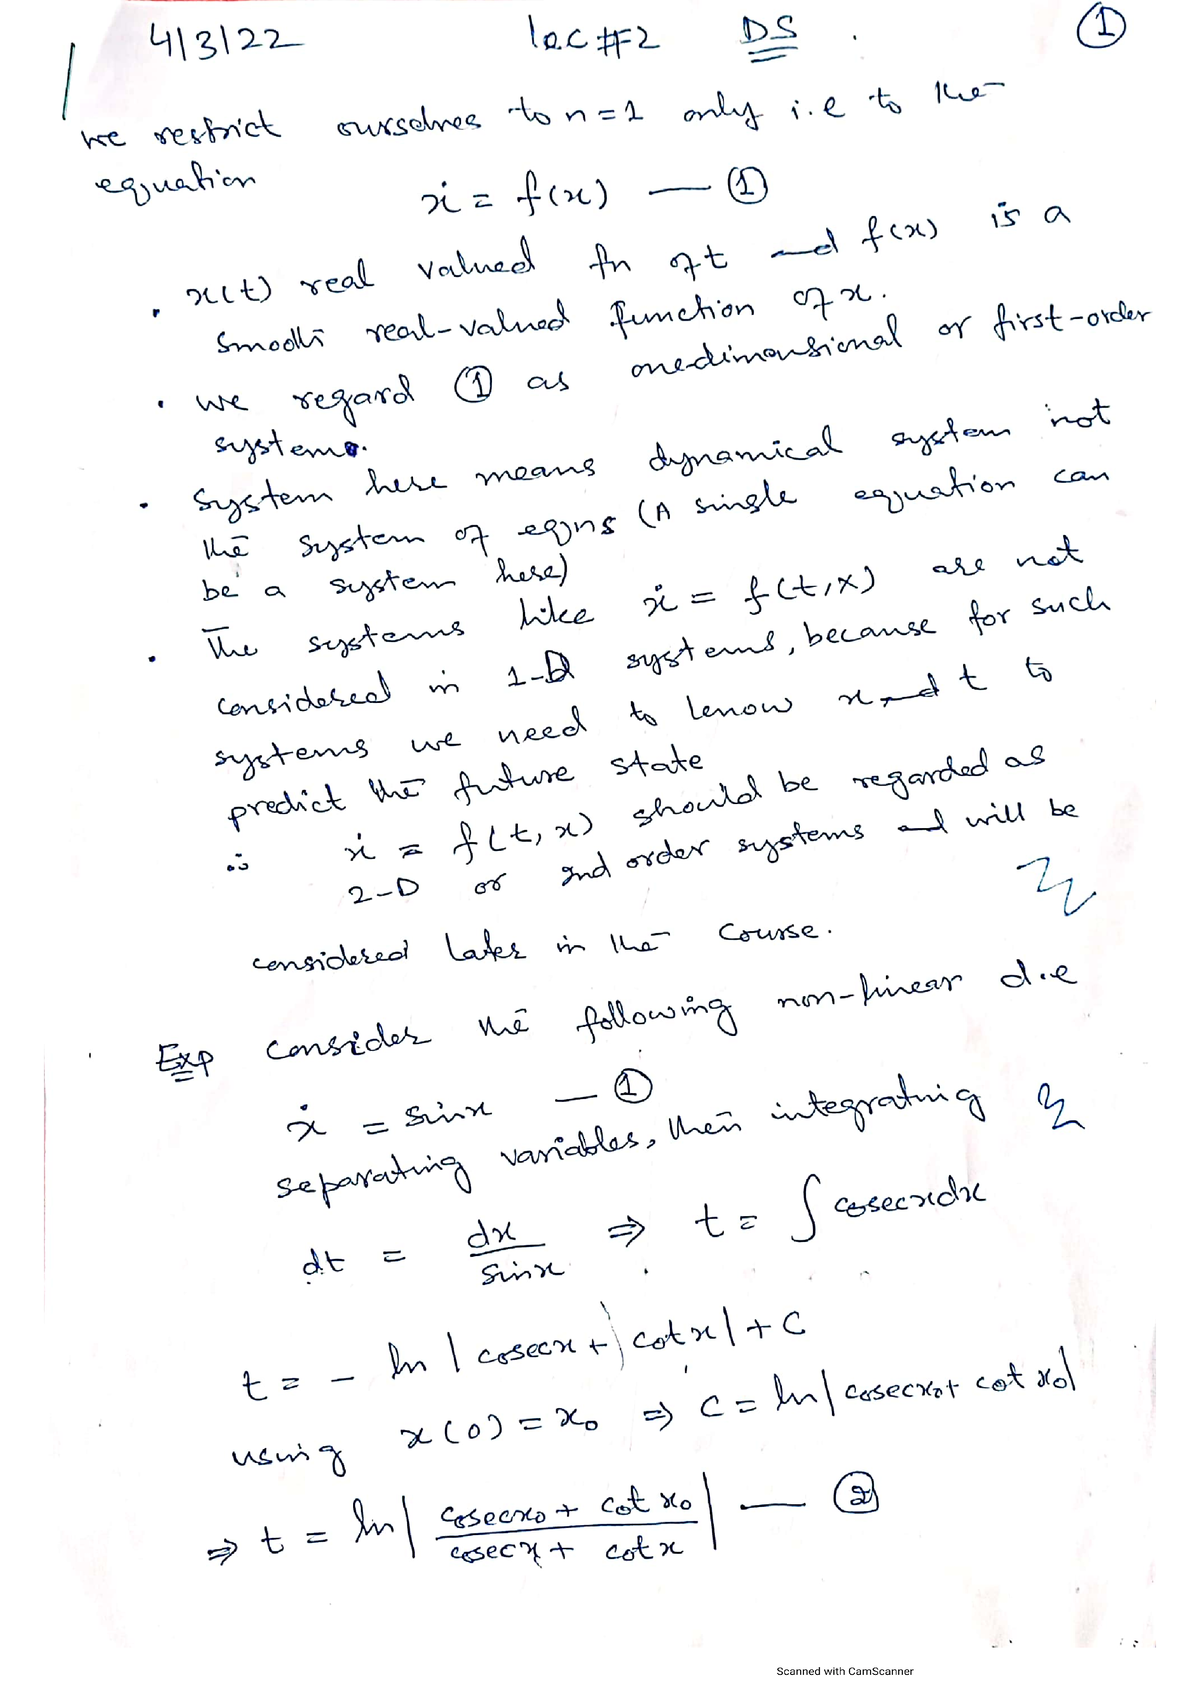 4/3/22 lec #2 DS . ①
we restrict ourselves to n=1 only i.e to the
equation
ẋ = f(x) — ①
. x(t) real valued fn of t and f(x) is a
smooth real-valued function of x.
. we regard ① as onedimensional or first-order
system.
. system here means dynamical system not
the system of eqns (A single equation can
be a system here)
. The systems like ẋ = f(t,x) are not
considered in 1-D systems, because for such
systems we need to know x and t to
predict the future state
∴ ẋ = f(t,x) should be regarded as
2-D or 2nd order systems and will be
considered later in the course.
Exp consider the following non-linear d.e
ẋ = sinx — ①
separating variables, then integrating
dt = dx/sinx ⇒ t = ∫ cosecxdx
t = - ln |cosecx + cotx| + C
using x(0) = x₀ ⇒ C = ln|cosecx₀+ cot x₀|
⇒ t = ln| cosecx₀ + cot x₀ / cosecx + cot x | — ②
Scanned with CamScanner